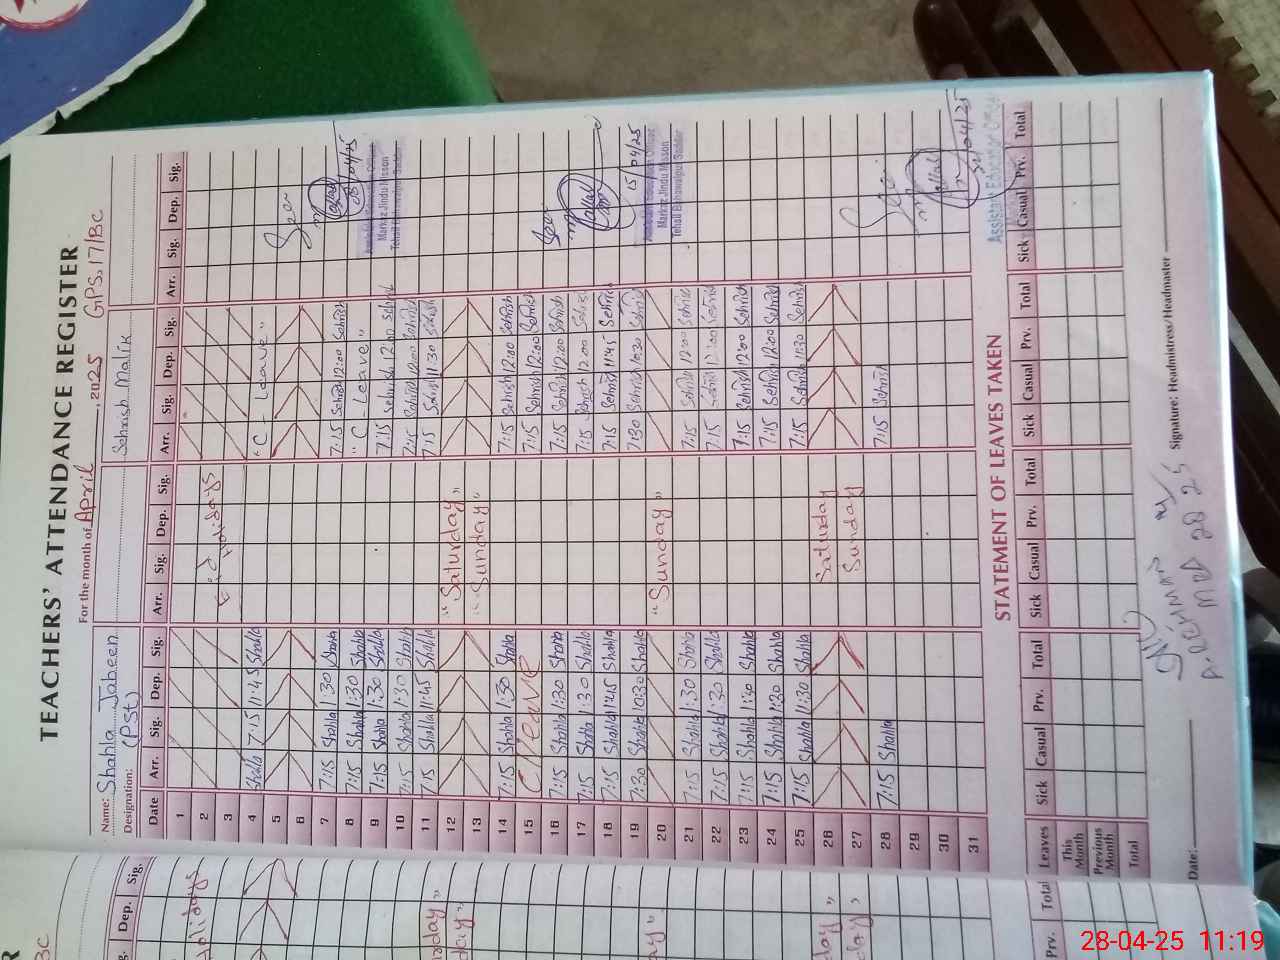 TEACHERS' ATTENDANCE REGISTER
For the month of April, 2025 GPS. 17/BC
Name: Shahla Jabeen Sehrish Malik
Designation: (Pst)
Date Arr. Sig. Dep. Sig. Arr. Sig. Dep. Sig. Arr. Sig. Dep. Sig. Arr. Sig. Dep. Sig.
1
2
3 Holidays
4 Shahla 7:15 11:45 Shahla "C - Leave"
5
6
7 7:15 Shahla 1:30 Shahla 7:15 Sehrish 12:00 Sehrish
8 7:15 Shahla 1:30 Shahla "C - Leave"
9 7:15 Shahla 1:30 Shahla 7:15 Sehrish 12:00 Sehrish
10 7:15 Shahla 1:30 Shahla 7:15 Sehrish 12:00 Sehrish
11 7:15 Shahla 11:45 Shahla 7:15 Sehrish 11:30 Sehrish
12 "Saturday"
13 "Sunday"
14 7:15 Shahla 1:30 Shahla 7:15 Sehrish 12:00 Sehrish
15 C/Leave 7:15 Sehrish 12:00 Sehrish
16 7:15 Shahla 1:30 Shahla 7:15 Sehrish 12:00 Sehrish
17 7:15 Shahla 1:30 Shahla 7:15 Sehrish 12:00 Sehrish
18 7:15 Shahla 11:45 Shahla 7:15 Sehrish 11:45 Sehrish
19 7:30 Shahla 10:30 Shahla 7:30 Sehrish 10:30 Sehrish
20 "Sunday"
21 7:15 Shahla 1:30 Shahla 7:15 Sehrish 12:00 Sehrish
22 7:15 Shahla 1:30 Shahla 7:15 Sehrish 12:00 Sehrish
23 7:15 Shahla 1:30 Shahla 7:15 Sehrish 12:00 Sehrish
24 7:15 Shahla 1:30 Shahla 7:15 Sehrish 12:00 Sehrish
25 7:15 Shahla 11:30 Shahla 7:15 Sehrish 11:30 Sehrish
26 Saturday
27 Sunday
28 7:15 Shahla 7:15 Sehrish
29
30
31
08/04/25
Markaz Jindu Misson
Tehsil Bahawalpur Saddar
15/04/25
Markaz Jindu Misson
Tehsil Bahawalpur Saddar
Assistant Education Officer
STATEMENT OF LEAVES TAKEN
Leaves Sick Casual Prv. Total Sick Casual Prv. Total Sick Casual Prv. Total Sick Casual Prv. Total
This Month
Previous Month
Total
Date: Signature: Headmistress/Headmaster
28-04-25 11:19